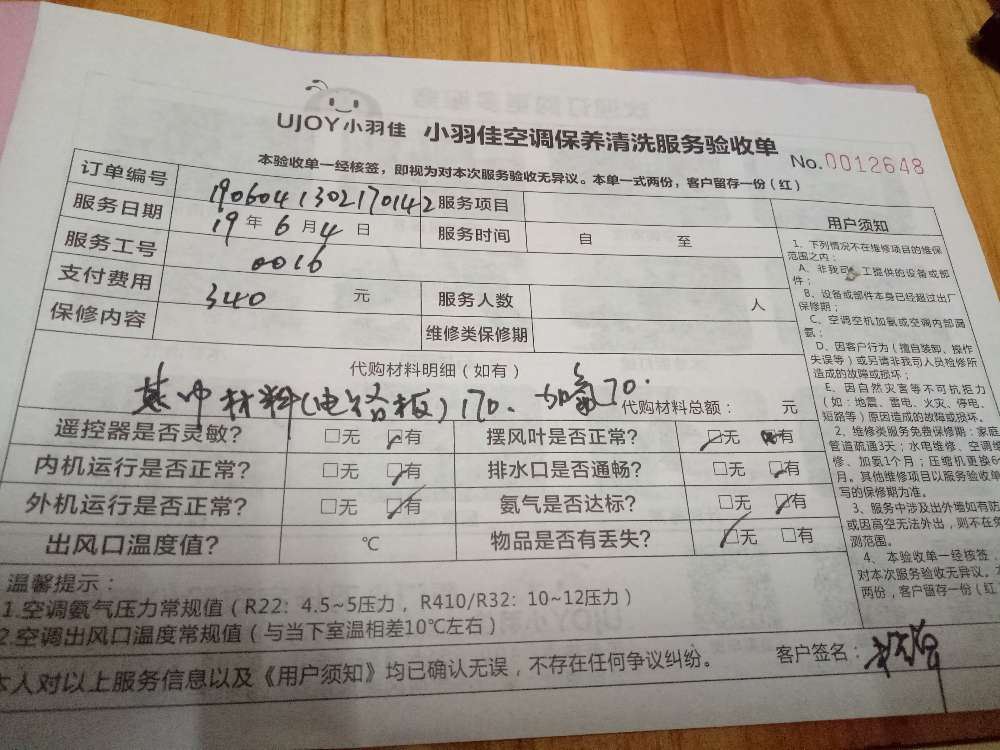 UJOY小羽佳 小羽佳空调保养清洗服务验收单 No.0012648
本验收单一经核签，即视为对本次服务验收无异议。本单一式两份，客户留存一份（红）
订单编号 1906041302170142 服务项目
服务日期 19年6月4日 服务时间 自 至
服务工号 0016
支付费用 340 元 服务人数 人
保修内容 维修类保修期
代购材料明细（如有）
其中材料(电路板)170、加氟70.
代购材料总额： 元
遥控器是否灵敏? □无 □有 摆风叶是否正常? □无 □有
内机运行是否正常? □无 □有 排水口是否通畅? □无 □有
外机运行是否正常? □无 □有 氨气是否达标? □无 □有
出风口温度值? ℃ 物品是否有丢失? □无 □有
温馨提示：
1.空调氨气压力常规值（R22：4.5~5压力，R410/R32：10~12压力）
2.空调出风口温度常规值（与当下室温相差10℃左右）
本人对以上服务信息以及《用户须知》均已确认无误，不存在任何争议纠纷。 客户签名：
用户须知
1、下列情况不在维修项目的维保
范围之内：
A、非我司 工提供的设备或部
件；
B、设备或部件本身已经超过出厂
保修期；
C、空调空机加氨或空调内部漏
氨；
D、因客户行为（擅自装卸、操作
失误等）或另请非我司人员检修所
造成的故障或损坏；
E、因自然灾害等不可抗拒力
（如：地震、雷电、火灾、停电、
短路等）原因造成的故障或损坏。
2、维修类服务免费保修期：家庭
管道疏通3天；水电维修、空调维
修、加氨1个月；压缩机更换6个
月。其他维修项目以服务验收单
写的保修期为准。
3、服务中涉及出外墙如有防
或因高空无法外出，则不在
测范围。
4、本验收单一经核签，
对本次服务验收无异议。
两份，客户留存一份（红